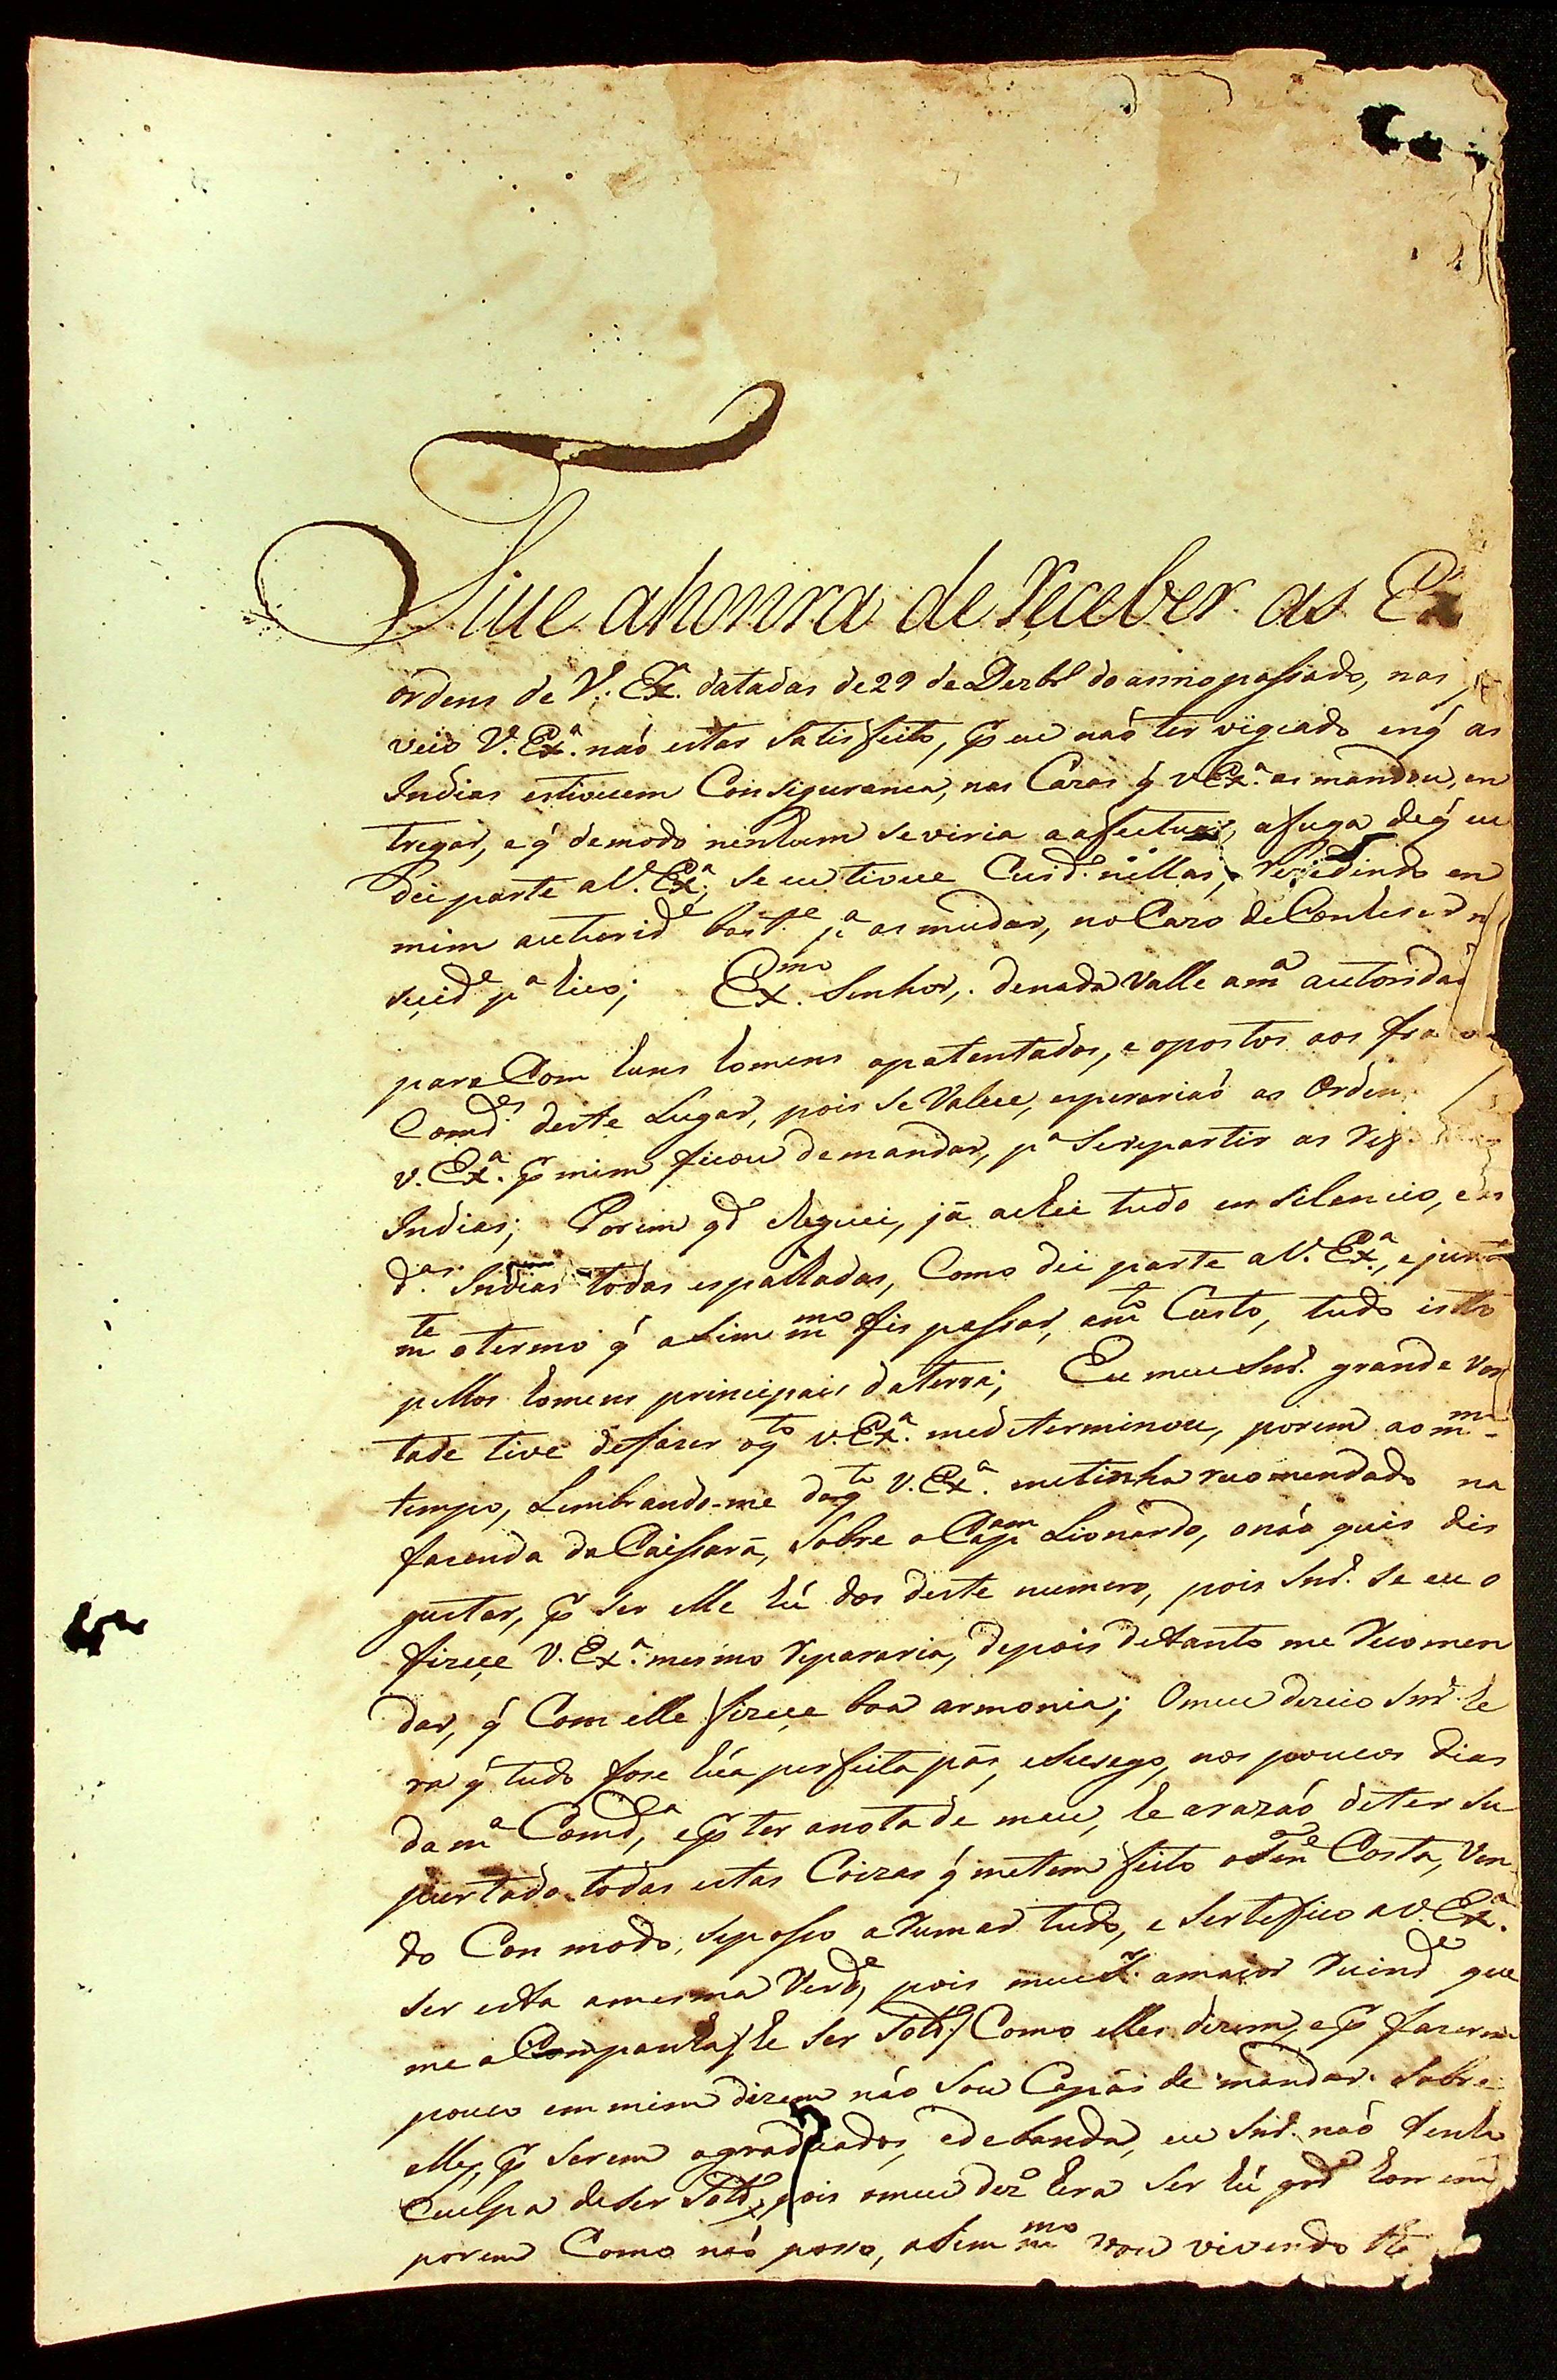 Tiue ahonrra de Receber as Ex
ordens de V. Exª. datadas de 29 de Dezbrº do anno passado, nas
veio V. Exª. náo estar satisfeito, p eu náo ter vigiado enq̃ as
Indias estivecem Consiguranca, nas Cazas q̃ v Exª. as mandou, en
tregar, e q̃ demodo nenhum seviria a afectuar, afuga deq̃ eu
dei parte aV. Exª; se eu tivece Cuidº. nellas, Rezedindo en
mim autoridᵉ bastᵉ. pª as mudar, no Cazo de Conhecer n
cecidᵉ pª hico; Exᵐᵒ. Senhor, denada Valle amª autoridad
para Com huns homens apatentados, e opostos aos fra
Comdᵉˢ deste Lugar, pois se Valece, esperariaó as Orden
v. Exª. p mim ficou demandar, pª Serepartir as Ref
Indias; Porem qdº cheguei, já achei tudo en silencio, e as
dªˢ. Indias todas espalhadas, Como dei parte aV. Exª, e junta
mᵗᵉ o termo q̃ asim mᵐᵒ fis passar, amᵗᵒ Custo, tudo isto
pellos homens principais daterra; Eu meu Snr. grande von
tade tive defazer oqᵗᵒ v. Exª. medeterminou, porem ao mᵐᵒ
tempo, Lembrando-me doqᵗᵒ V. Exª. metinha recomendado na
fazenda da Caissara, Sobre o Capᵃᵐ Lionardo, onáo quis dis
gustar, p ser elle hú dos deste numero, pois Snr. se eu o
fizece V. Exª. mesmo Repararia, depois detanto me Recomen
dar, q̃ Com elle fizece boa armonia; Omeu dezeio Snr. he
ra q̃ tudo fose húa perfeita pás, eSucego, nos poucos dias
da mª Comdª, e p ter anota de meu, he arazaó deter su
purtado todas estas Coizas q̃ metem feito o Tenᵉ Costa, Ven
do Con modo, seposso aRumar tudo, e Sertefico a V. Exª.
ser esta amesma Verdᵉ, pois meu S. amaior Ruindᵉ que
me aCompanha, he ser Soldº Como elles dizem, e p fazerem
pouco em mim dizem náo Sou Capás de mandar sobre
elles, p serem agraduados, edebanda, eu Snr. naó tenho
Culpa deser Soldº, pois omeu dezº hera ser hú grdᵉ homem
porem Como naó poso, asim mᵐᵒ vou vivendo thé